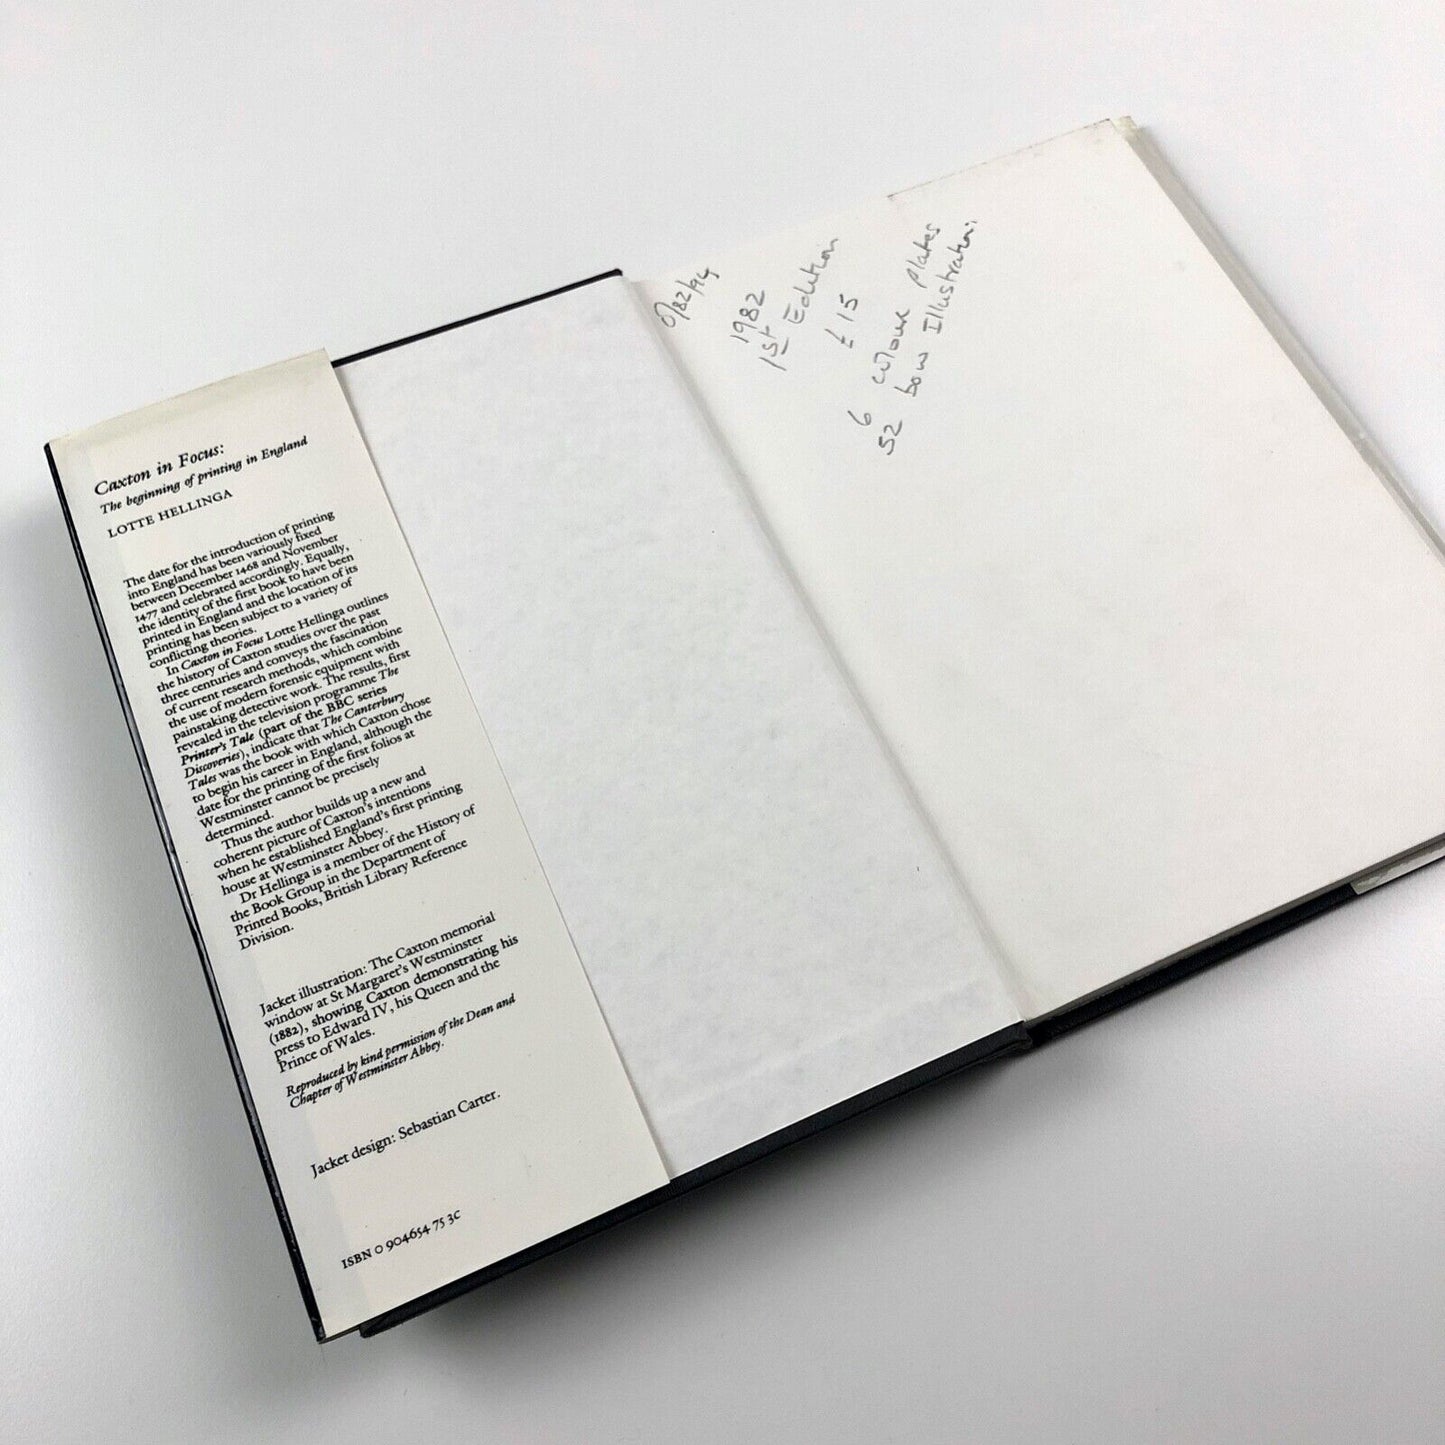 Caxton in Focus:
The beginning of printing in England
LOTTE HELLINGA
The date for the introduction of printing
into England has been variously fixed
between December 1468 and November
1477 and celebrated accordingly. Equally,
the identity of the first book to have been
printed in England and the location of its
printing has been subject to a variety of
conflicting theories.
In Caxton in Focus Lotte Hellinga outlines
the history of Caxton studies over the past
three centuries and conveys the fascination
of current research methods, which combine
the use of modern forensic equipment with
painstaking detective work. The results, first
revealed in the television programme The
Printer's Tale (part of the BBC series
Discoveries), indicate that The Canterbury
Tales was the book with which Caxton chose
to begin his career in England, although the
date for the printing of the first folios at
Westminster cannot be precisely
determined.
Thus the author builds up a new and
coherent picture of Caxton's intentions
when he established England's first printing
house at Westminster Abbey.
Dr Hellinga is a member of the History of
the Book Group in the Department of
Printed Books, British Library Reference
Division.
Jacket illustration: The Caxton memorial
window at St Margaret's Westminster
(1882), showing Caxton demonstrating his
press to Edward IV, his Queen and the
Prince of Wales.
Reproduced by kind permission of the Dean and
Chapter of Westminster Abbey.
Jacket design: Sebastian Carter.
ISBN 0 904654 75 3C
1982
1st Edition
£15
6 colour Plates
52 b&w Illustration